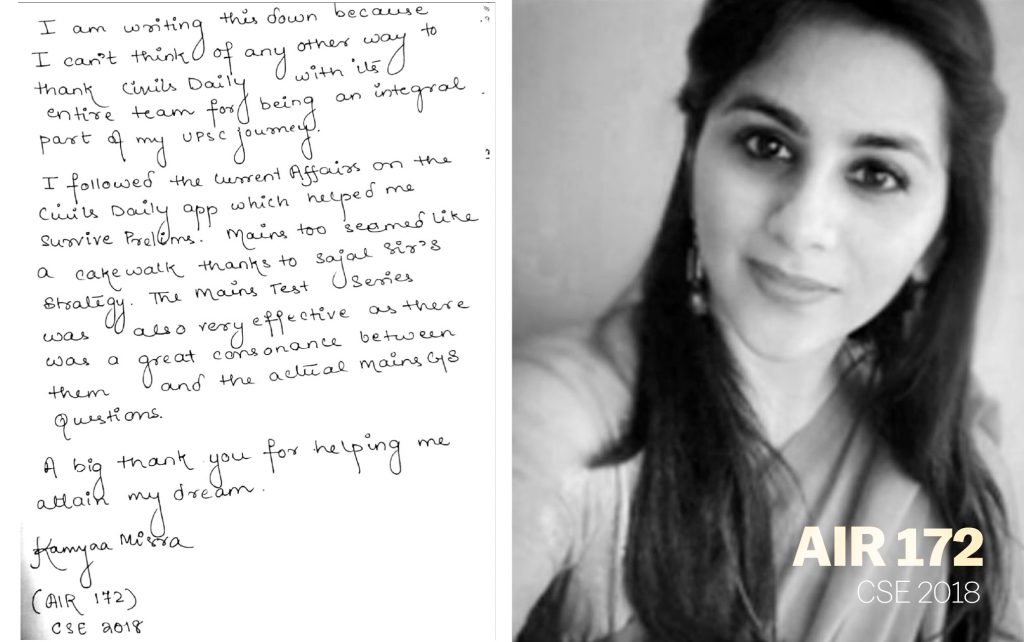 I am writing this down because
I can't think of any other way to
thank Civils Daily with its
entire team for being an integral
part of my UPSC journey.
I followed the Current Affairs on the
Civils Daily app which helped me
survive Prelims. Mains too seemed like
a cakewalk thanks to Sajal Sir's
Strategy. The Mains Test Series
was also very effective as there
was a great consonance between
them and the actual mains GS
Questions.
A big thank you for helping me
attain my dream.
Kamyaa Misra
(AIR 172)
CSE 2018
AIR 172
CSE 2018